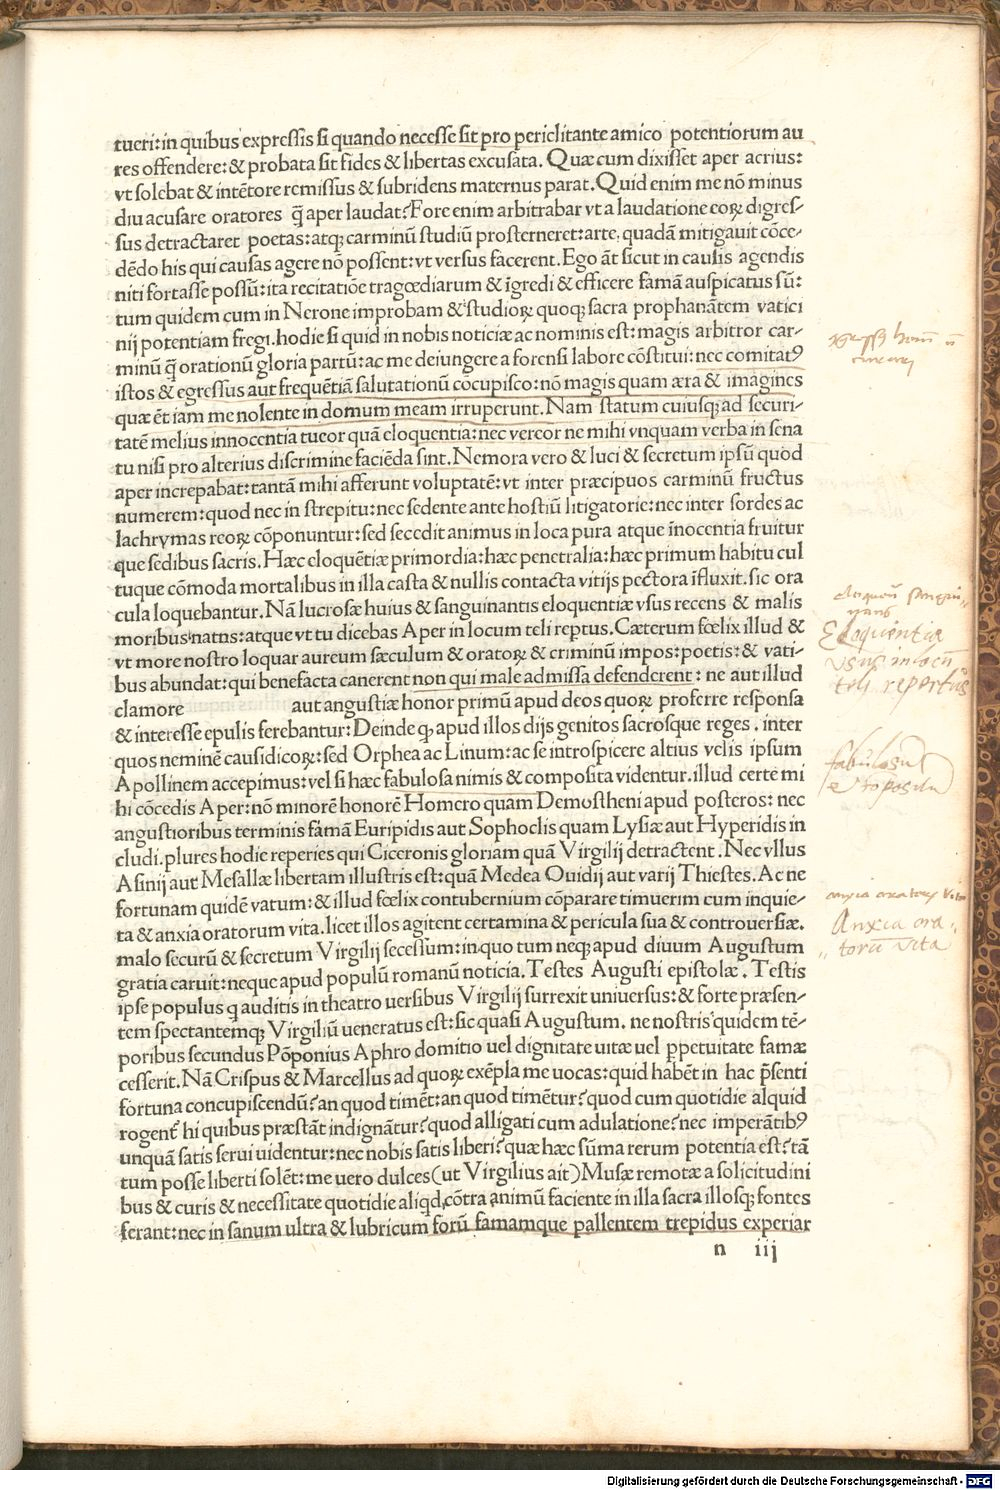 tueri:in quibus expressis si quando necesse sit pro periclitante amico potentiorum au
res offendere:& probata sit fides & libertas excusata. Quæ cum dixisset aper acrius:
vt solebat & intētore remissus & subridens maternus parat. Quid enim me nō minus
diu acusare oratores q̄ aper laudat? Fore enim arbitrabar vt a laudatione eoꝝ digres-
sus detractaret poetas:atqꝫ carminū studiū prosterneret:arte quadā mitigauit cōce-
dēdo his qui causas agere nō possent:vt versus facerent. Ego āt sicut in causis agendis
niti fortasse possū:ita recitatiōe tragœdiarum & īgredi & efficere famā auspicatus sū:
tum quidem cum in Nerone improbam & studioꝝ quoqꝫ sacra prophanātem vatici
nij potentiam fregi. hodie si quid in nobis noticiæ ac nominis est:magis arbitror car-
minū q̄ orationū gloria partū:ac me deiungere a forensi labore cōstitui:nec comitatꝰ
istos & egressus aut frequētiā salutationū cōcupisco:nō magis quam æra & imagines
quæ ēt iam me nolente in domum meam irruperunt. Nam statum cuiusqꝫ ad securi-
tatē melius innocentia tueor quā eloquentia:nec vereor ne mihi vnquam verba in sena
tu nisi pro alterius discrimine faciēda sint. Nemora vero & luci & secretum ipsū quod
aper increpabat:tantā mihi afferunt voluptatē:vt inter præcipuos carminū fructus
numerem:quod nec in strepitu:nec sedente ante hostiū litigatorie:nec inter sordes ac
lachrymas reoꝝ cōponuntur:sed secedit animus in loca pura atque īnocentia fruitur
que sedibus sacris. Hæc eloquētiæ primordia:hæc penetralia:hæc primum habitu cul
tuque cōmoda mortalibus in illa casta & nullis contacta vitijs pectora īfluxit. sic ora
cula loquebantur. Nā lucrosæ huius & sanguinantis eloquentiæ vsus recens & malis
moribus natns:atque vt tu dicebas Aper in locum teli reptus. Cæterum fœlix illud &
vt more nostro loquar aureum sæculum & oratoꝝ & criminū impos:poetis:& vati-
bus abundat:qui benefacta canerent non qui male admissa defenderent: ne aut illud
clamore aut angustiæ honor primū apud deos quoꝝ proferre responsa
& interesse epulis ferebantur: Deinde qꝫ apud illos dijs genitos sacrosque reges. inter
quos neminē causidicoꝝ:sed Orphea ac Linum:ac se introspicere altius velis ipsum
Apollinem accepimus:vel si hæc fabulosa nimis & composita videntur. illud certe mi
hi cōcedis Aper:nō minorē honorē Homero quam Demostheni apud posteros: nec
angustioribus terminis fámā Euripidis aut Sophoclis quam Lysiæ aut Hyperidis in
cludi. plures hodie reperies qui Ciceronis gloriam quā Virgilij detractent. Nec vllus
Asinij aut Mesallæ libertam illustris est:quā Medea Ouidij aut varij Thiestes. Ac ne
fortunam quidē vatum:& illud fœlix contubernium cōparare timuerim cum inquie-
ta & anxia oratorum vita. licet illos agitent certamina & pericula sua & controuersiæ.
malo securū & secretum Virgilij secessum:in quo tum neqꝫ apud diuum Augustum
gratia caruit:neque apud populū romanū noticia. Testes Augusti epistolæ. Testis
ipse populus q auditis in theatro uersibus Virgilij surrexit uniuersus:& forte præsen-
tem spectantemqꝫ Virgiliū ueneratus est:sic quasi Augustum. ne nostris quidem tē-
poribus secundus Pōponius Aphro domitio uel dignitate uitæ uel ppetuitate famæ
cesserit. Nā Crispus & Marcellus ad quoꝝ exēpla me uocas:quid habēt in hac p̄senti
fortuna concupiscendū? an quod timēt:an quod timētur? quod cum quotidie alquid
rogent hi quibus præstāt indignātur? quod alligati cum adulatione? nec imperātibꝰ
unquā satis serui uidentur:nec nobis satis liberi? quæ hæc sūma rerum potentia est? tā
tum posse liberti solēt:me uero dulces (ut Virgilius ait) Musæ remotæ a solicitudini
bus & curis & necessitate quotidie aliqd cōtra animū faciente in illa sacra illosqꝫ fontes
ferant:nec in sanum ultra & lubricum forū famamque pallentem trepidus experiar
n iij
Eloquentiæ
vsus in locū
teli repertus
fabulosum
& cōpositū
anxia oratorū vita
Anxia ora-
torū vita
Digitalisierung gefördert durch die Deutsche Forschungsgemeinschaft - DFG